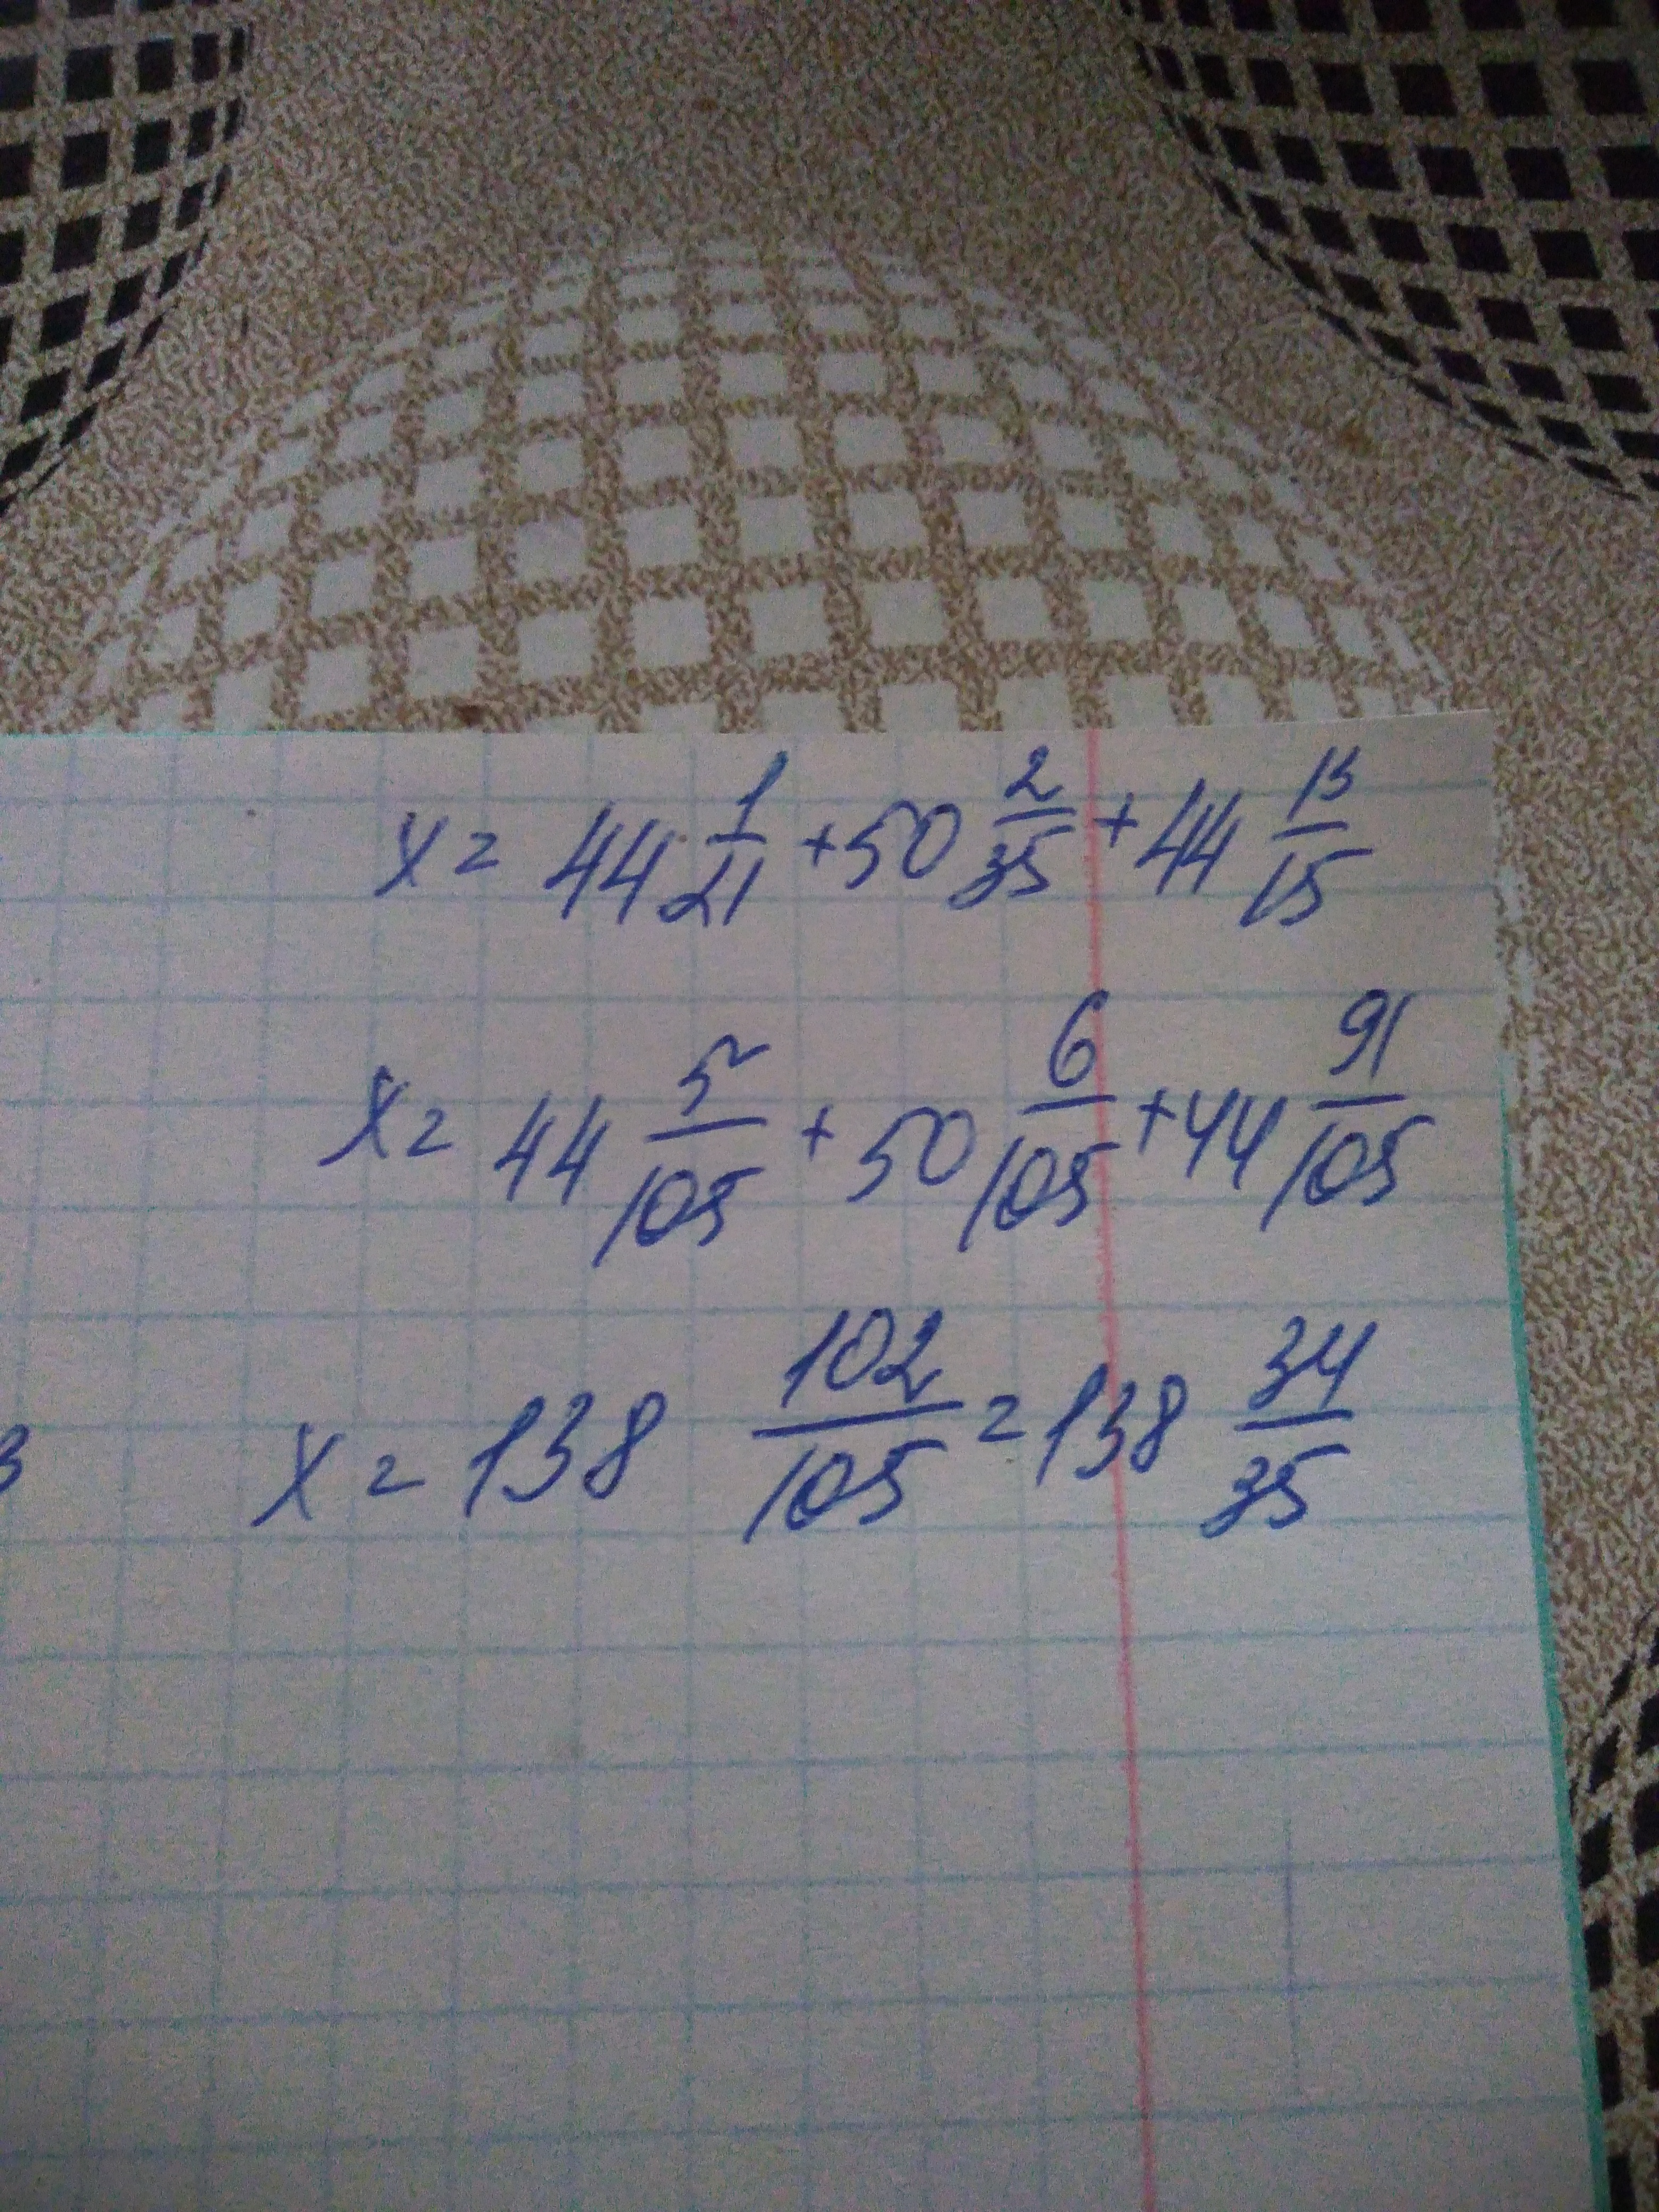 x = 44 1/21 + 50 2/35 + 44 13/15
x = 44 5/105 + 50 6/105 + 44 91/105
3 x = 138 102/105 = 138 34/35